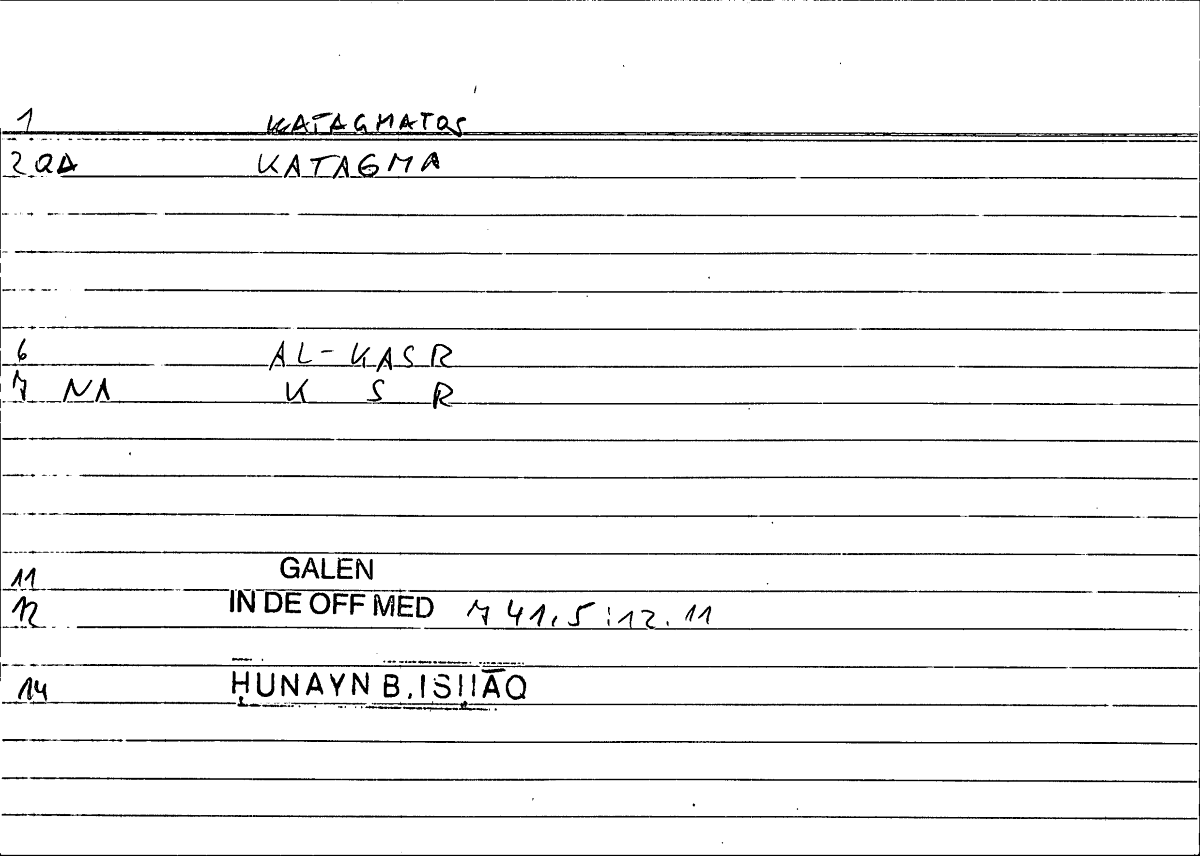 1 KATAGMATOS
2 QA KATAGMA
6 AL-KASR
7 NA K S R
11 GALEN
12 IN DE OFF MED 7 41,5:12.11
14 ḤUNAYN B. ISḤĀQ